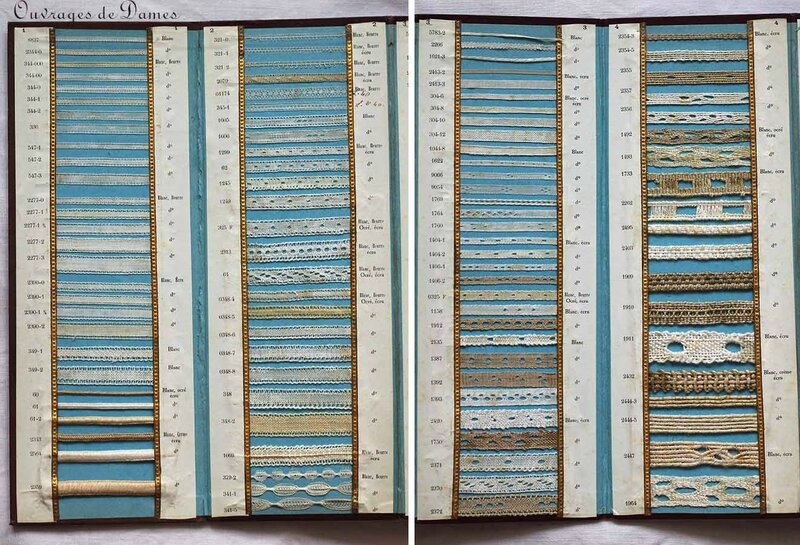 Ouvrages de Dames
1
Blanc
2344-0
Blanc, Beurre
344-00
344-000
344-0
344-1
344-2
336
547-1
547-2
547-3
Blanc, Beurre
2277-0
2277-1
2277-2
2277-3
Blanc, Écru
2390-0
2390-1
2390-1 ½
2390-2
349-1
Blanc
349-2
60
Blanc, ocré
écru
61
61-2
2343
Blanc, Crème
écru
2350
2
321-0
Blanc, Beurre
321-1
321-2
2079
Blanc, Beurre
écru
345-1
1005
Blanc
1006
1299
Blanc, Beurre
écru
62
1245
1249
325 F
Blanc, Beurre
Ocré, écru
2313
64
Blanc, Beurre
Ocré, écru
0348-4
Blanc, Beurre
Ocré, écru
0348-5
0348-6
0348-7
0348-8
348
348-2
1069
Blanc, Beurre
écru
339-2
Blanc, Beurre
écru
341-1
341-5
3
5783-2
Blanc
2206
1021-3
2463-2
Blanc, écru
2463-3
304-6
Blanc, ocré
écru
304-8
304-10
304-12
1044-8
Blanc
922
9066
2054
1769
1764
1400
1404-1
Blanc, écru
1404-2
1406-1
1406-2
0325 F
Blanc, écru
1158
Blanc, écru
1912
2435
1387
1392
1393
2420
Blanc, écru
1750
2371
2370
2374
4
2354-3
Blanc, écru
2354-5
2355
2357
2356
1492
Blanc, ocré
écru
1493
1733
Blanc, écru
2202
2495
2403
1909
1910
1911
Blanc, écru
2432
Blanc, crème
écru
2444-3
2444-5
2447
1964